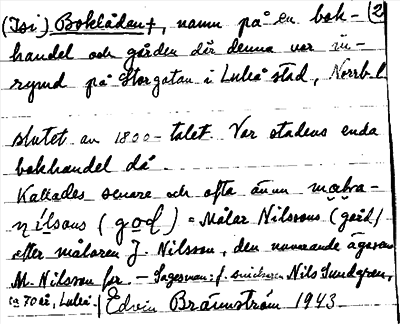 (Isi)Boklådan†, namn på en bok- (2)
handel och gården där denna var in-
rymd på Storgatan i Luleå stad, Norrb. l.
slutet av 1800-talet. Var stadens enda
bokhandel då.
Kallades senare och ofta ännu
nílsons (god) = Målar Nilssons (gård)
efter målaren J. Nilsson, den nuvarande ägarens
M. Nilsson far. – Sagesman: f. snickaren Nils Sundgren,
ca 70 år, Luleå. | Edvin Brännström 1943